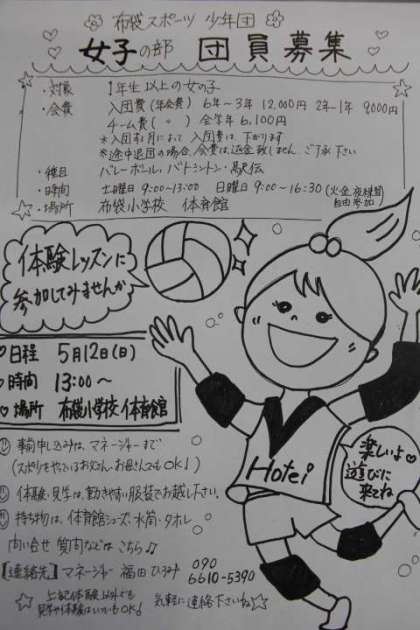 布袋スポーツ 少年団
女子の部 団員募集
・対象 1年生以上の女の子
・会費 入団費(年会費) 6年〜3年 12,000円 2年・1年 9000円
チーム費( 〃 ) 全学年 6,100円
*入団する月によって 入団費は 下がります
*途中退団の場合、会費は返金致しません。ご了承下さい
・種目 バレーボール、バドミントン・駅伝
・時間 土曜日 9:00〜13:00 日曜日 9:00〜16:30 (火・金 夜練習 自由参加)
・場所 布袋小学校 体育館
体験レッスンに
参加してみませんか
♡日程 5月12日(日)
♡時間 13:00〜
♡場所 布袋小学校体育館
事前申し込みは、マネージャーまで
(スポ少をやっているお父さん・お母さんでもOK!)
体験・見学は、動きやすい服装でお越し下さい。
持ち物は、体育館シューズ・水筒・タオル
問い合せ 質問などはこちら♪
[連絡先] マネージャー 福田ひろみ 090
6610-5390
☆上記体験以外でも
見学や体験はいつでもOK!
気軽に連絡下さいね☆
Hotei
楽しいよ♡
遊びに
来てね